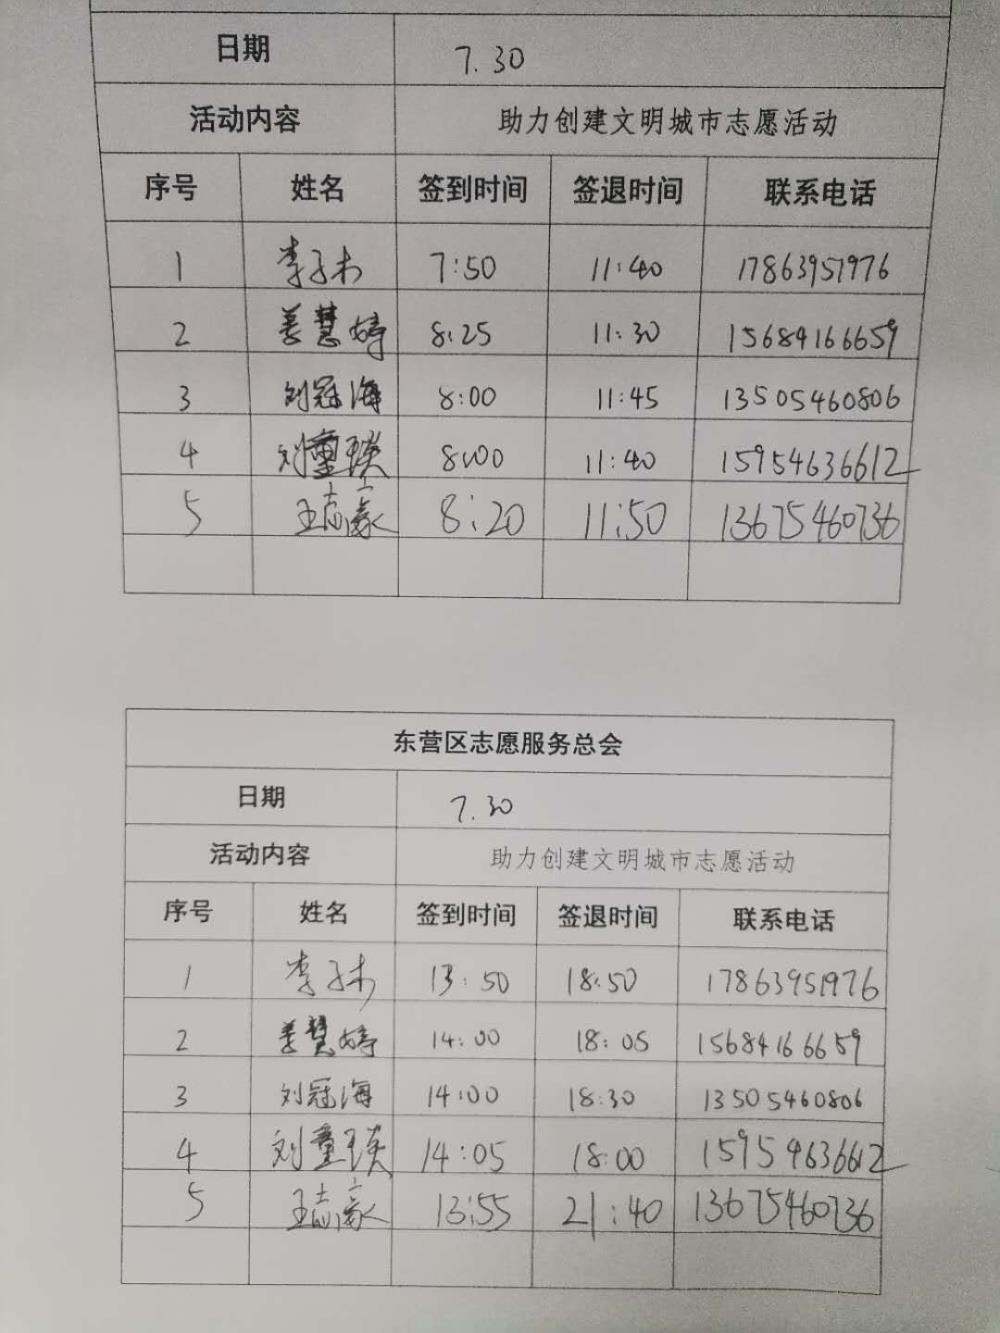 日期 7.30
活动内容 助力创建文明城市志愿活动
序号 姓名 签到时间 签退时间 联系电话
1 李子木 7:50 11:40 17863951976
2 姜慧婷 8:25 11:30 15684166659
3 刘冠海 8:00 11:45 13505460806
4 刘童瑛 8:00 11:40 15954636612
5 王志豪 8:20 11:50 13675460736
东营区志愿服务总会
日期 7.30
活动内容 助力创建文明城市志愿活动
序号 姓名 签到时间 签退时间 联系电话
1 李子木 13:50 18:50 17863951976
2 姜慧婷 14:00 18:05 15684166659
3 刘冠海 14:00 18:30 13505460806
4 刘童瑛 14:05 18:00 15954636612
5 王志豪 13:55 21:40 13675460736